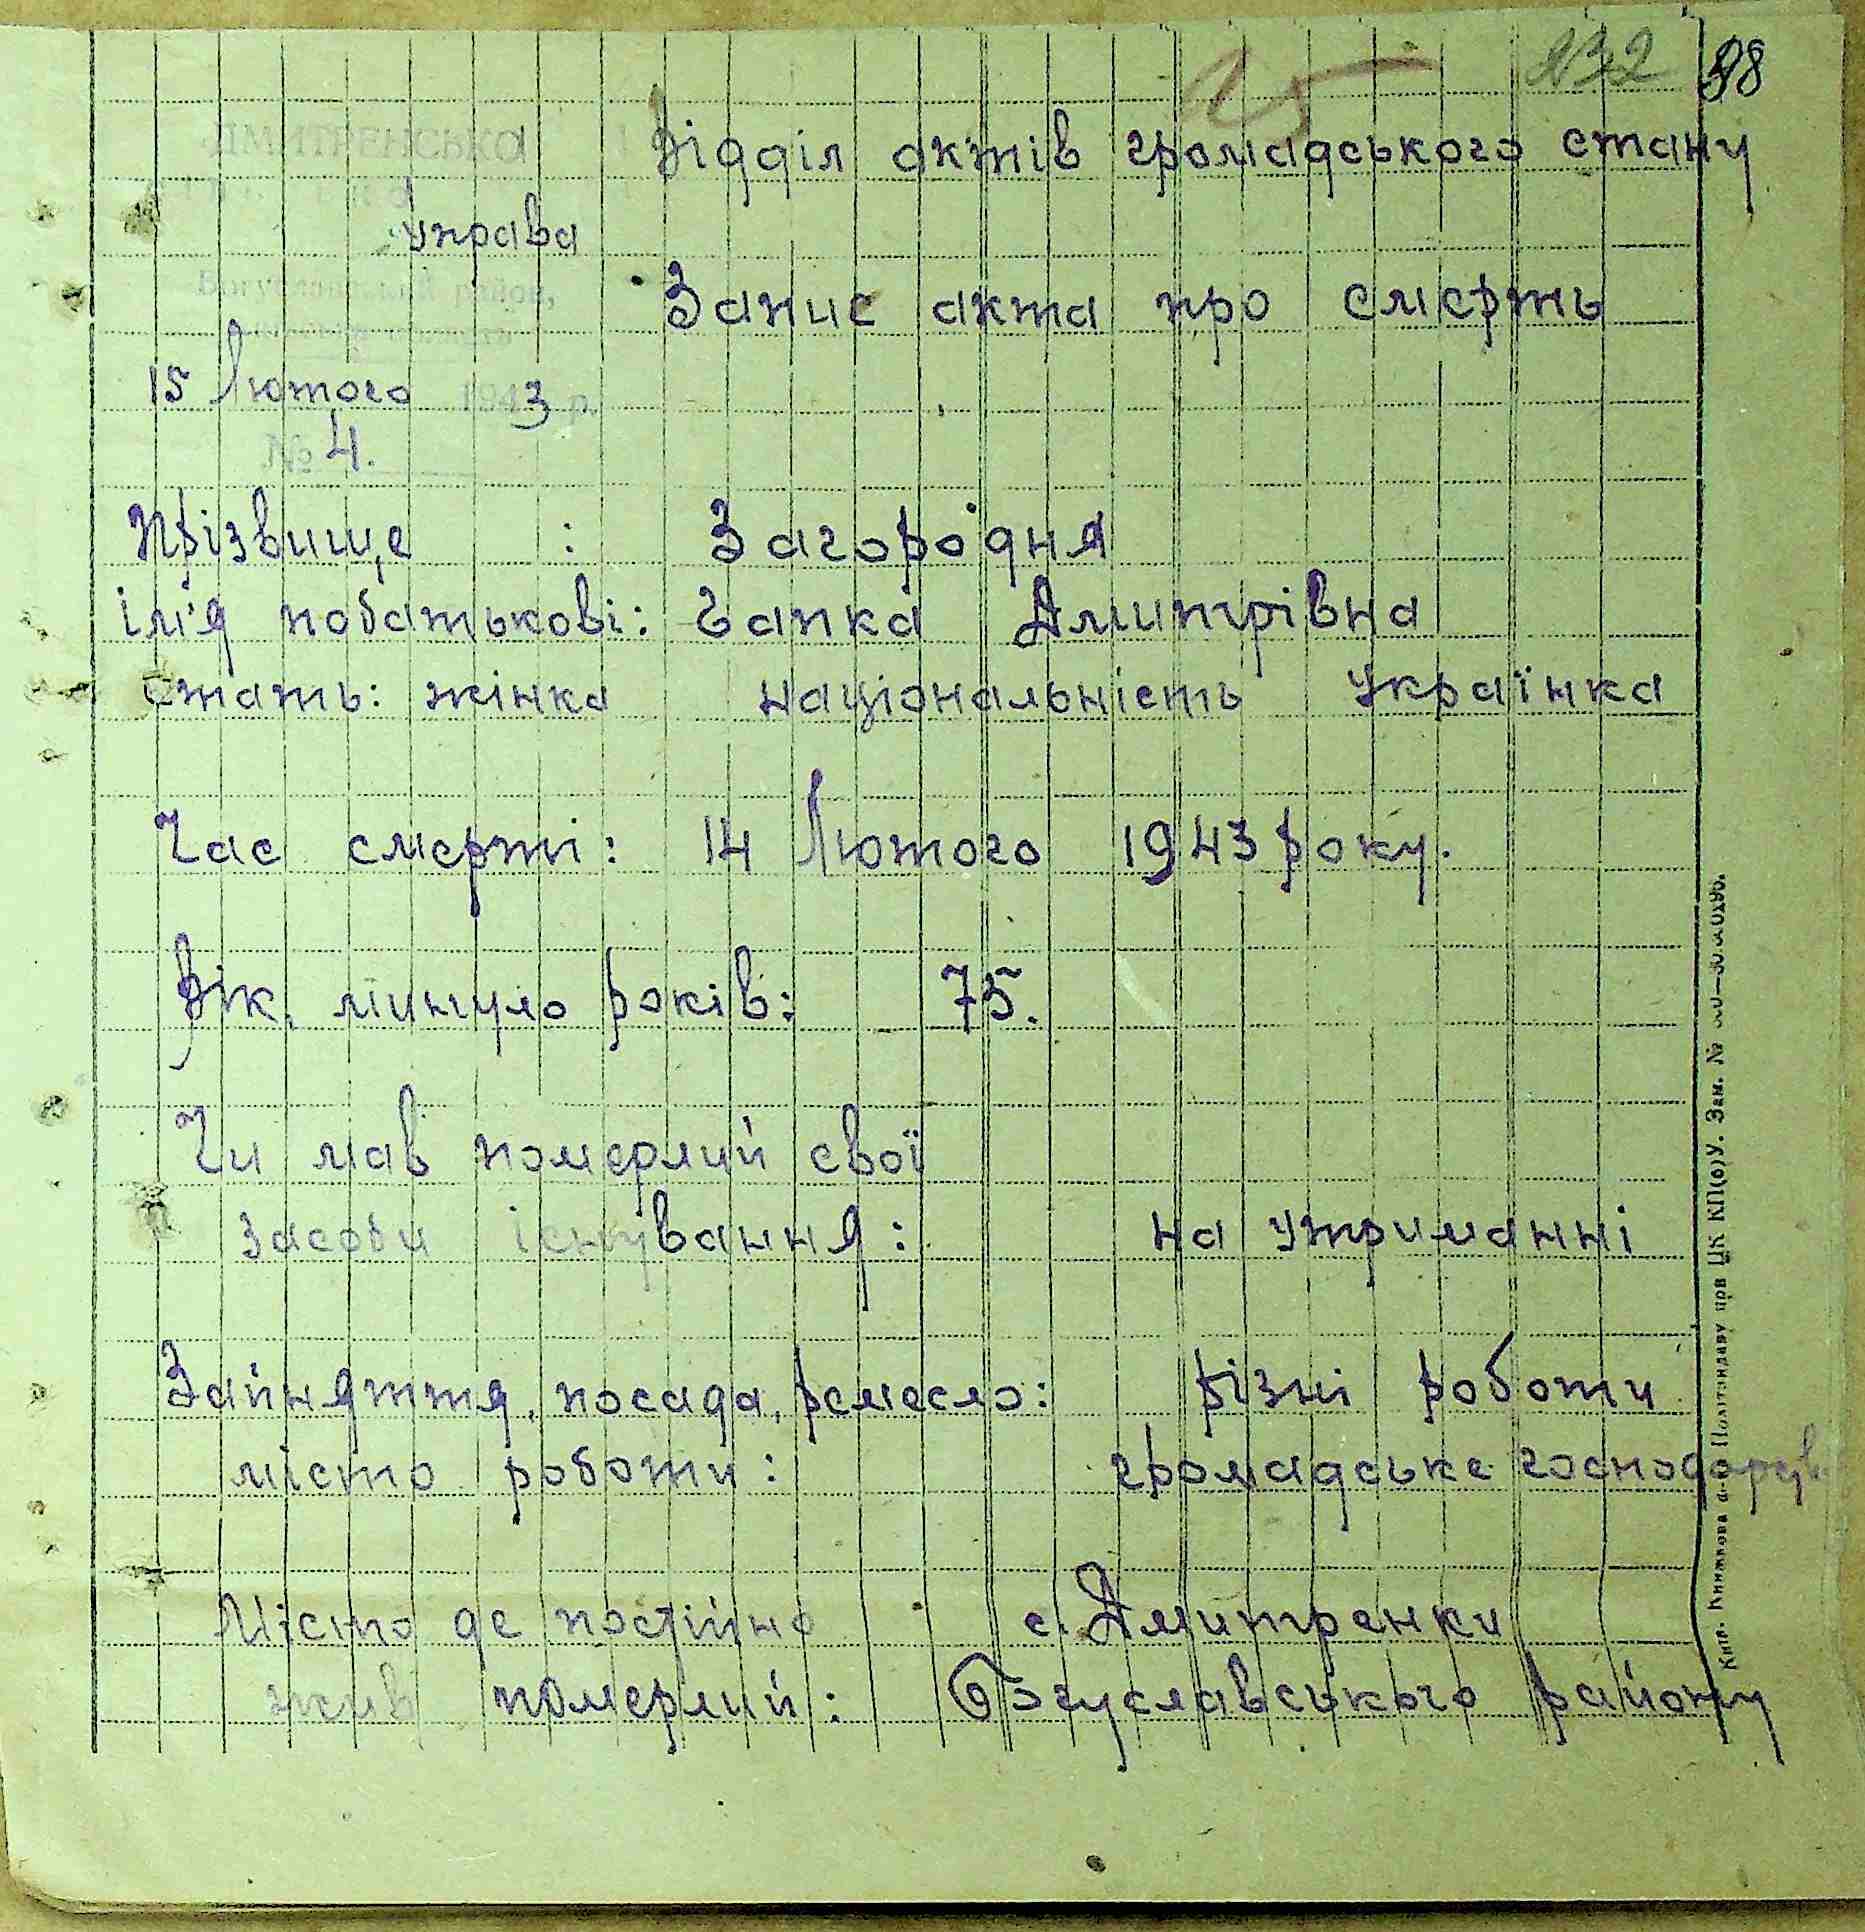 232 98
15
Відділ актів громадського стану
ДМИТРЕНСЬКА
Управа
Богуславський район,
Запис акта про смерть
15 Лютого 1943 р.
№ 4.
Прізвище : Загородня
ім'я побатькові: Гапка Дмитрівна
стать: жінка національність Українка
Час смерті: 14 Лютого 1943 року.
Вік, минуло років: 75.
Чи мав померлий свої
засоби існування: на утриманні
Зайняття, посада, ремесло: різні роботи
місто роботи: громадське господарув.
Місто де постійно с. Дмитренки
жив померлий: Богуславського району
Київ. Книжкова ф-ка Політвидаву при ЦК КП(б)У. Зам. №